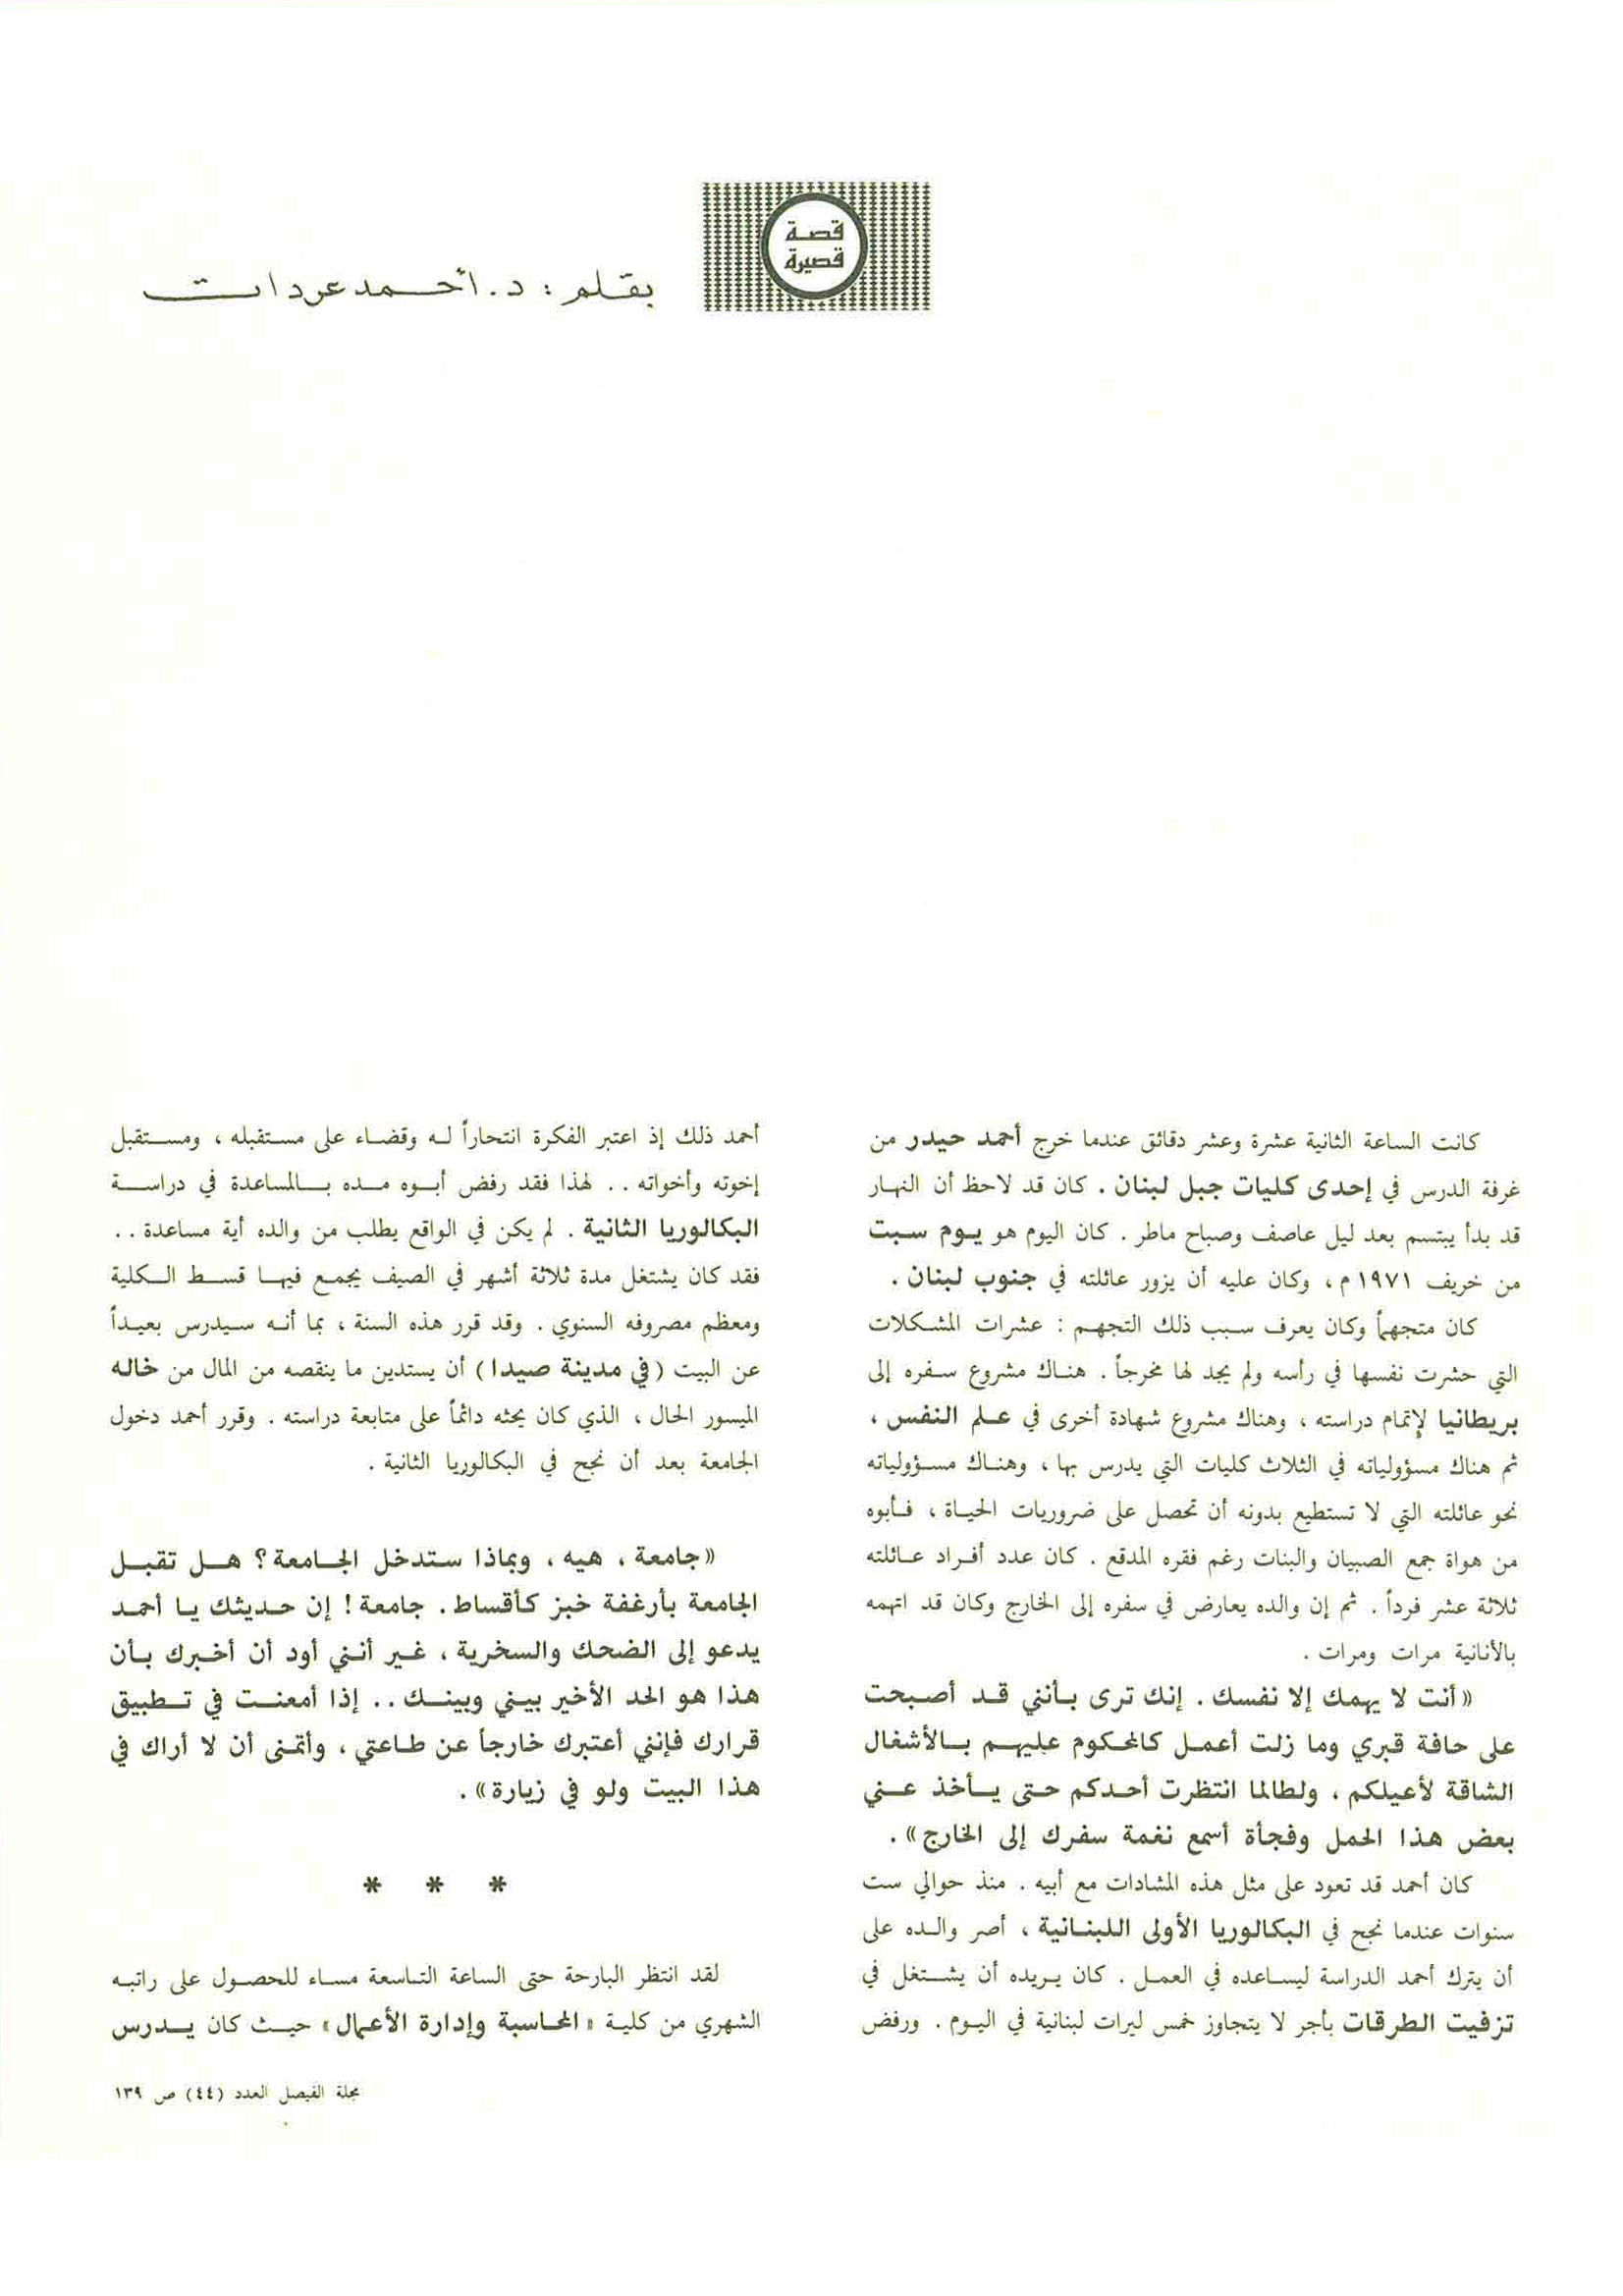 قصة
قصيرة
بقلم : د. أحمد عردات
كانت الساعة الثانية عشرة وعشر دقائق عندما خرج أحمد حيدر من
غرفة الدرس في إحدى كليات جبل لبنان . كان قد لاحظ أن النهار
قد بدأ يبتسم بعد ليل عاصف وصباح ماطر . كان اليوم هو يوم سبت
من خريف ١٩٧١ م ، وكان عليه أن يزور عائلته في جنوب لبنان .
كان متجهماً وكان يعرف سبب ذلك التجهم : عشرات المشكلات
التي حشرت نفسها في رأسه ولم يجد لها مخرجاً . هناك مشروع سفره إلى
بريطانيا لإتمام دراسته ، وهناك مشروع شهادة أخرى في علم النفس ،
ثم هناك مسؤولياته في الثلاث كليات التي يدرس بها ، وهناك مسؤولياته
نحو عائلته التي لا تستطيع بدونه أن تحصل على ضروريات الحياة ، فأبوه
من هواة جمع الصبيان والبنات رغم فقره المدقع . كان عدد أفراد عائلته
ثلاثة عشر فرداً . ثم إن والده يعارض في سفره إلى الخارج وكان قد اتهمه
بالأنانية مرات ومرات .
«أنت لا يهمك إلا نفسك . إنك ترى بأنني قد أصبحت
على حافة قبري وما زلت أعمل كالمحكوم عليهم بالأشغال
الشاقة لأعيلكم ، ولطالما انتظرت أحدكم حتى يأخذ عني
بعض هذا الحمل وفجأة أسمع نغمة سفرك إلى الخارج» .
كان أحمد قد تعود على مثل هذه المشادات مع أبيه . منذ حوالي ست
سنوات عندما نجح في البكالوريا الأولى اللبنانية ، أصر والده على
أن يترك أحمد الدراسة ليساعده في العمل . كان يريده أن يشتغل في
تزفيت الطرقات بأجر لا يتجاوز خمس ليرات لبنانية في اليوم . ورفض
أحمد ذلك إذ اعتبر الفكرة انتحاراً له وقضاء على مستقبله ، ومستقبل
إخوته وأخواته . . لهذا فقد رفض أبوه مده بالمساعدة في دراسة
البكالوريا الثانية . لم يكن في الواقع يطلب من والده أية مساعدة . .
فقد كان يشتغل مدة ثلاثة أشهر في الصيف يجمع فيها قسط الكلية
ومعظم مصروفه السنوي . وقد قرر هذه السنة ، بما أنه سيدرس بعيداً
عن البيت (في مدينة صيدا) أن يستدين ما ينقصه من المال من خاله
الميسور الحال ، الذي كان يحثه دائماً على متابعة دراسته . وقرر أحمد دخول
الجامعة بعد أن نجح في البكالوريا الثانية .
«جامعة ، هيه ، وبماذا ستدخل الجامعة ؟ هل تقبل
الجامعة بأرغفة خبز كأقساط . جامعة ! إن حديثك يا أحمد
يدعو إلى الضحك والسخرية ، غير أنني أود أن أخبرك بأن
هذا هو الحد الأخير بيني وبينك . . إذا أمعنت في تطبيق
قرارك فإنني أعتبرك خارجاً عن طاعتي ، وأتمنى أن لا أراك في
هذا البيت ولو في زيارة» .
* * *
لقد انتظر البارحة حتى الساعة التاسعة مساء للحصول على راتبه
الشهري من كلية «المحاسبة وإدارة الأعمال» حيث كان يدرس
مجلة الفيصل العدد (٤٤) ص ١٣٩